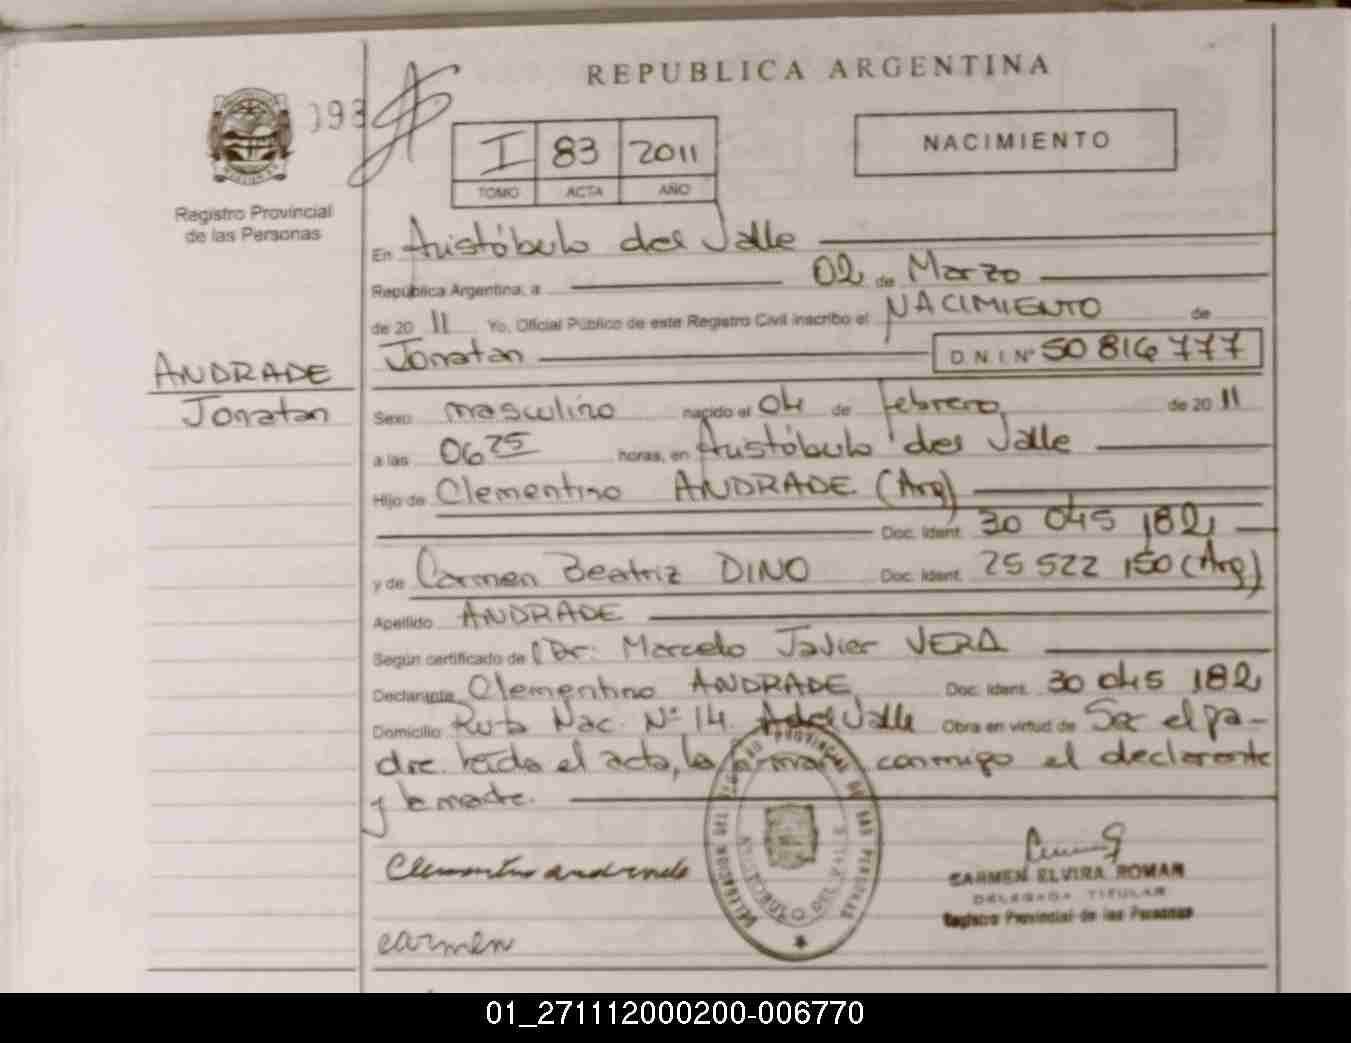 REPUBLICA ARGENTINA
093
I 83 2011
TOMO ACTA AÑO
NACIMIENTO
Registro Provincial
de las Personas
En Aristóbulo del Valle
República Argentina, a 02 de Marzo
de 20 11 Yo, Oficial Público de este Registro Civil inscribo el NACIMIENTO de
Jonatan D.N.I. Nº 50 816 777
ANDRADE
Jonatan
Sexo masculino nacido el 04 de febrero de 20 11
a las 06 25 horas, en Aristóbulo del Valle
Hijo de Clementino ANDRADE (Arg)
Doc. Ident. 30 045 182
y de Carmen Beatriz DINO Doc. Ident. 25 522 150 (Arg)
Apellido ANDRADE
Según certificado de Dr. Marcelo Javier VERA
Declarante Clementino ANDRADE Doc. Ident. 30 045 182
Domicilio Ruta Nac. Nº 14 A del Valle Obra en virtud de Ser el pa-
dre. leída el acta, la firman conmigo el declarante
y la madre.
Clementino andrade
carmen
REGISTRO PROVINCIAL DE LAS PERSONAS
ARISTOBULO DEL VALLE
CARMEN ELVIRA ROMAN
DELEGADA TITULAR
Registro Provincial de las Personas
01_271112000200-006770